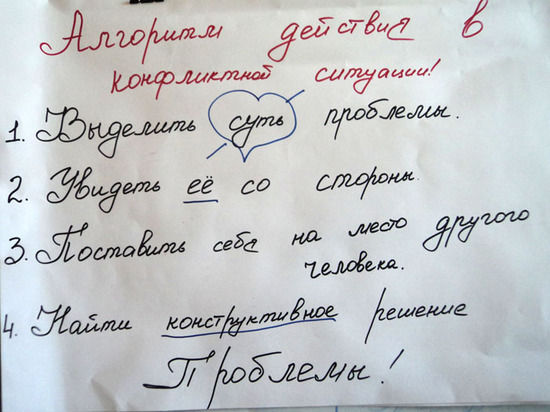 Алгоритм действия в
конфликтной ситуации!
1. Выделить суть проблемы.
2. Увидеть её со стороны.
3. Поставить себя на место другого
человека.
4. Найти конструктивное решение
Проблемы!